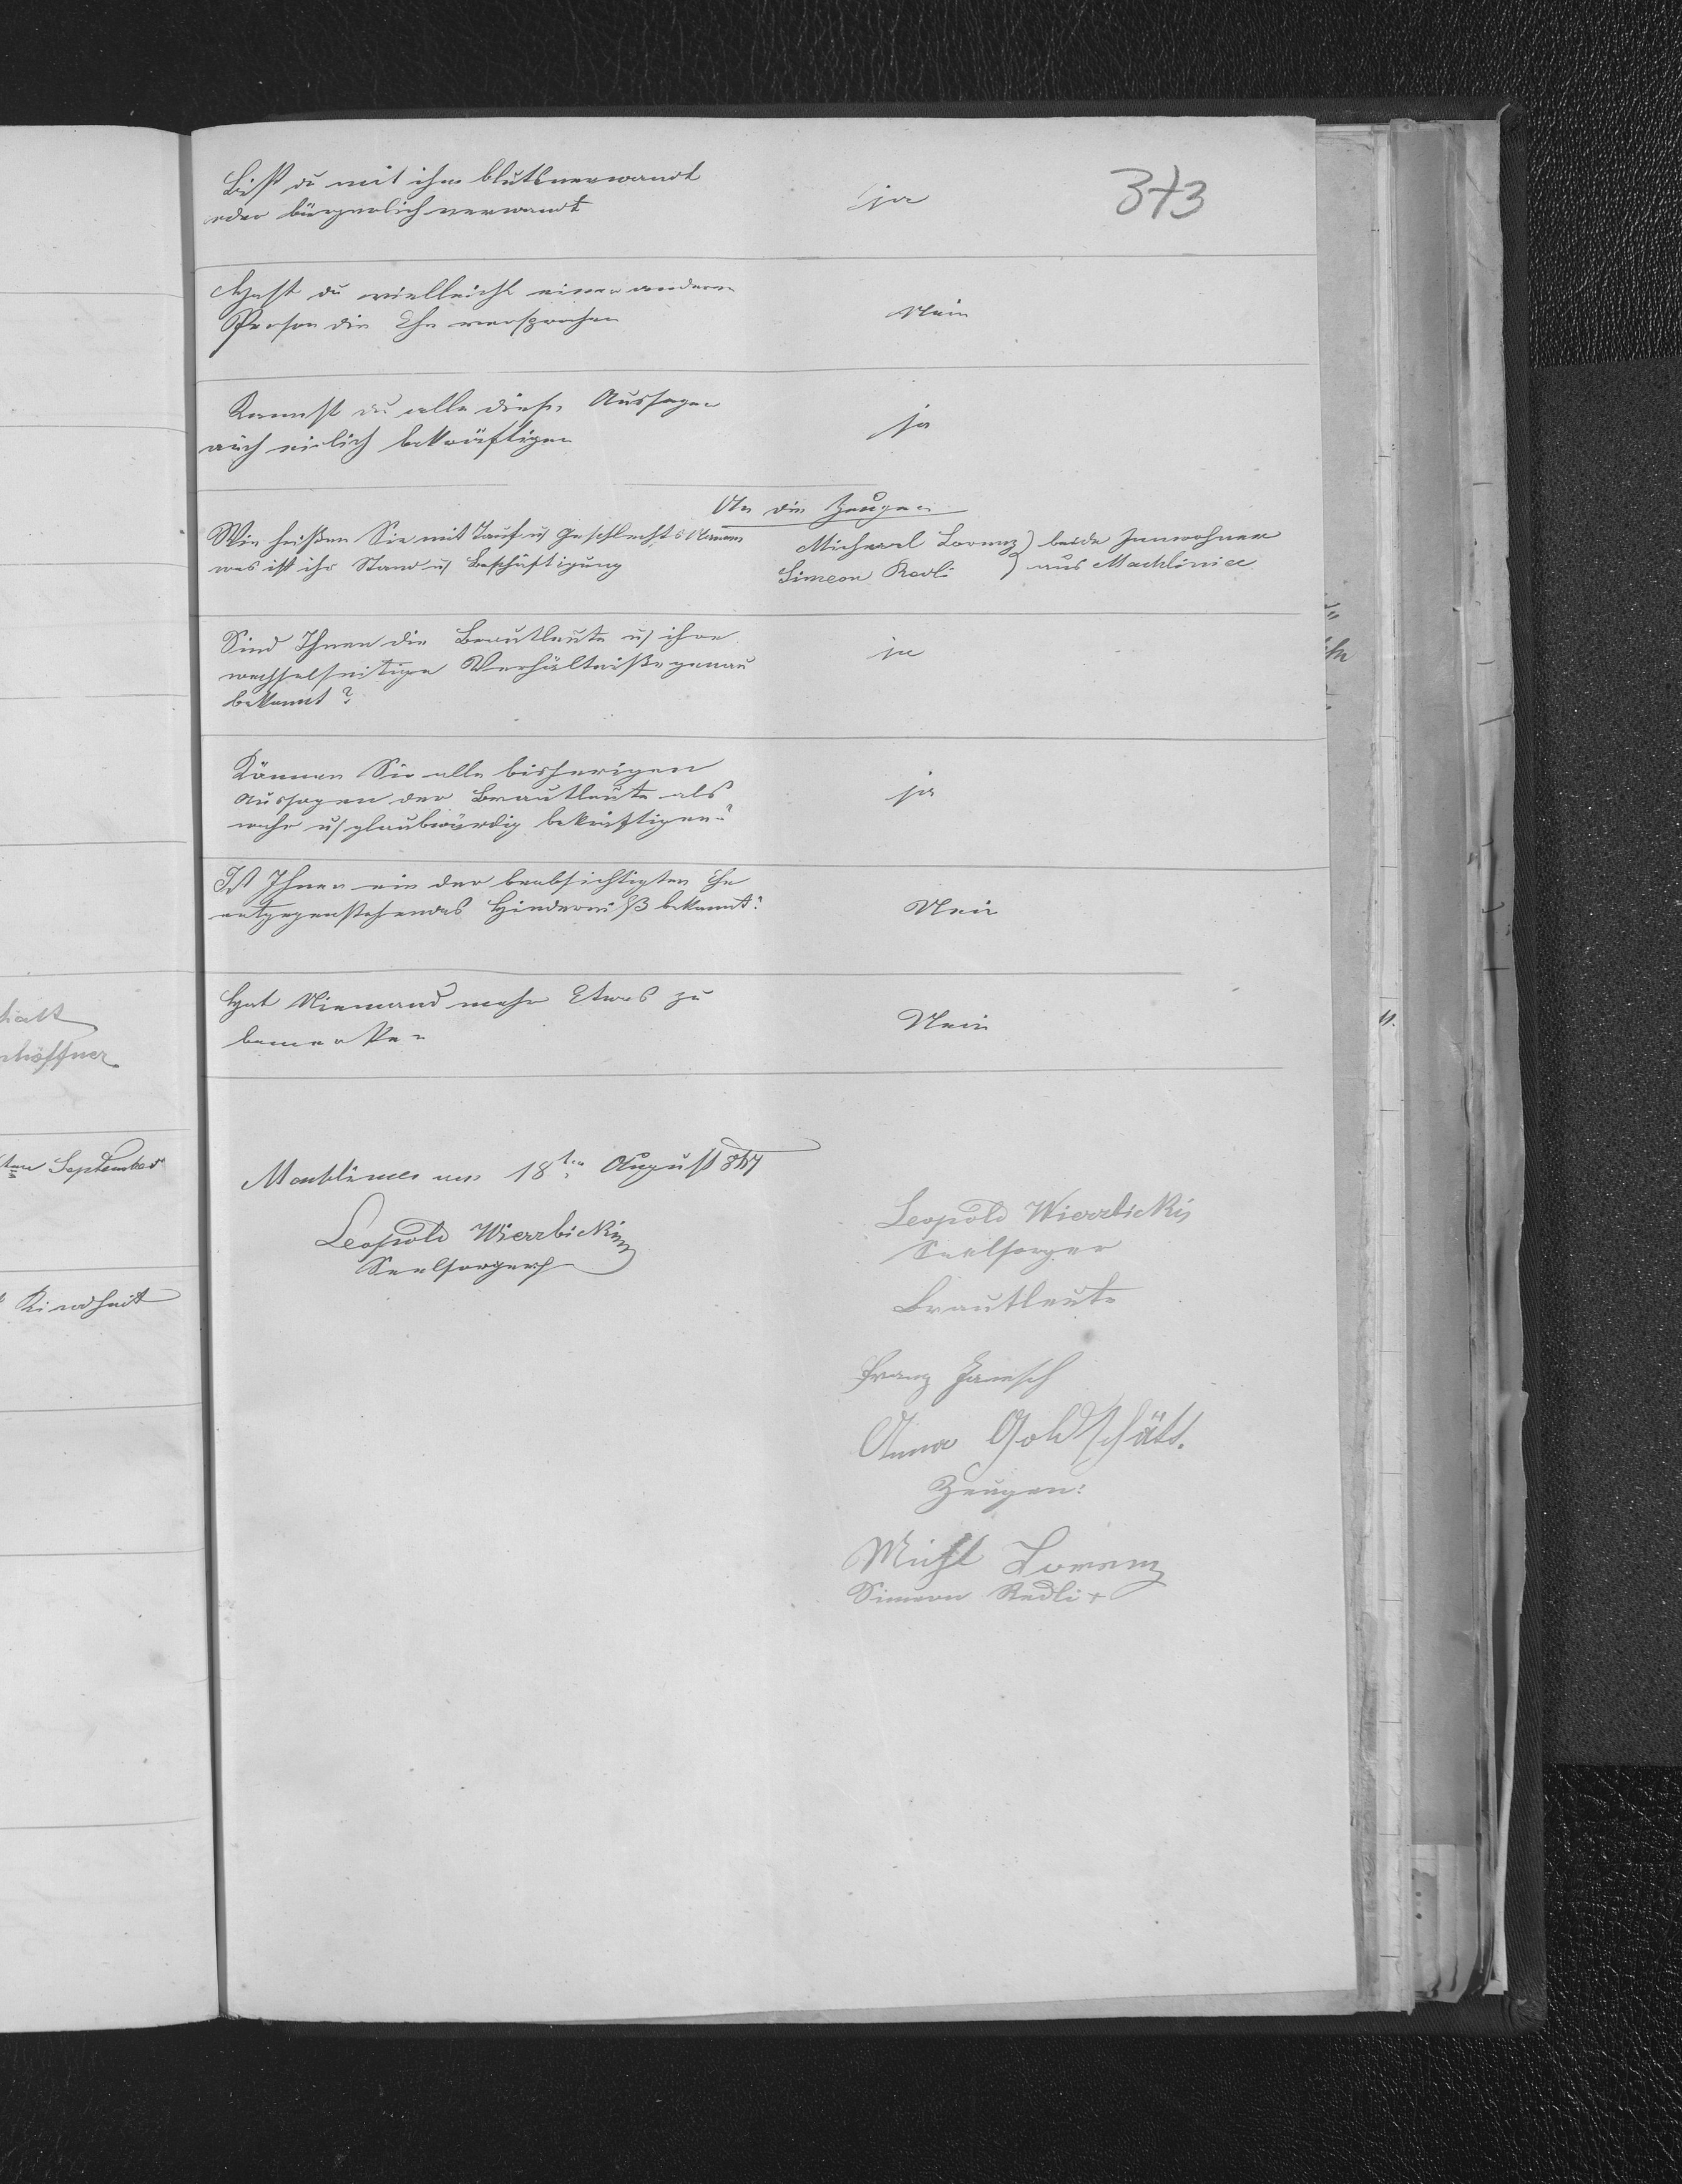 373
Bist du mit ihm blutsverwandt
oder bürgerlich verwandt
ja
Hast du vielleicht einer anderen
Person die Ehe versprochen
Nein
Kannst du alle diese Aussagen
auch eidlich bekräftigen
ja
An die Zeugen
Wie heißen Sie mit Tauf u/ Geschlechts Namen
was ist ihr Stand u/ Beschäftigung
Michael Lorenz ) beide Innwohner
Simeon Redli ) aus Machliniec
Sind Ihnen die Brautleute u/ ihre
wechselseitigen Verhältniße genau
bekannt?
ja
Können Sie alle bisherigen
Aussagen der Brautleute als
wahr u/ glaubwürdig bekräftigen?
ja
Ist Ihnen ein der beabsichtigten Ehe
entgegenstehendes Hinderniß bekannt?
Nein
Hat Niemand mehr Etwas zu
bemerken
Nein
Machliniec am 18ten August
Leopold Wierzbicki
Seelsorger
Leopold Wierzbicki
Seelsorger
Brautleute
Franz Janisch
Anna Goldschätt.
Zeugen:
Michl Lorenz
Simeon Redli +
ten September
Kindheit